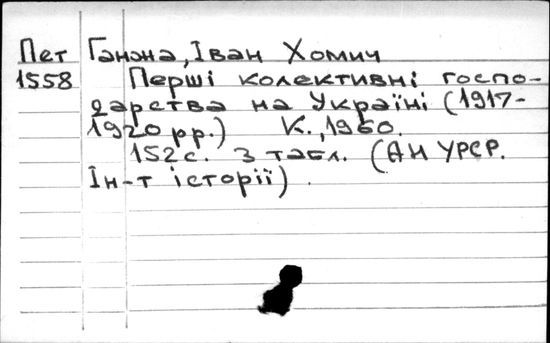 Пет Ганжа, Іван Хомич
1558 Перші колективні госпо-
дарства на Україні (1917-
1920 рр.) К., 1960.
152с. з табл. (АН УРСР.
Ін-т історії).